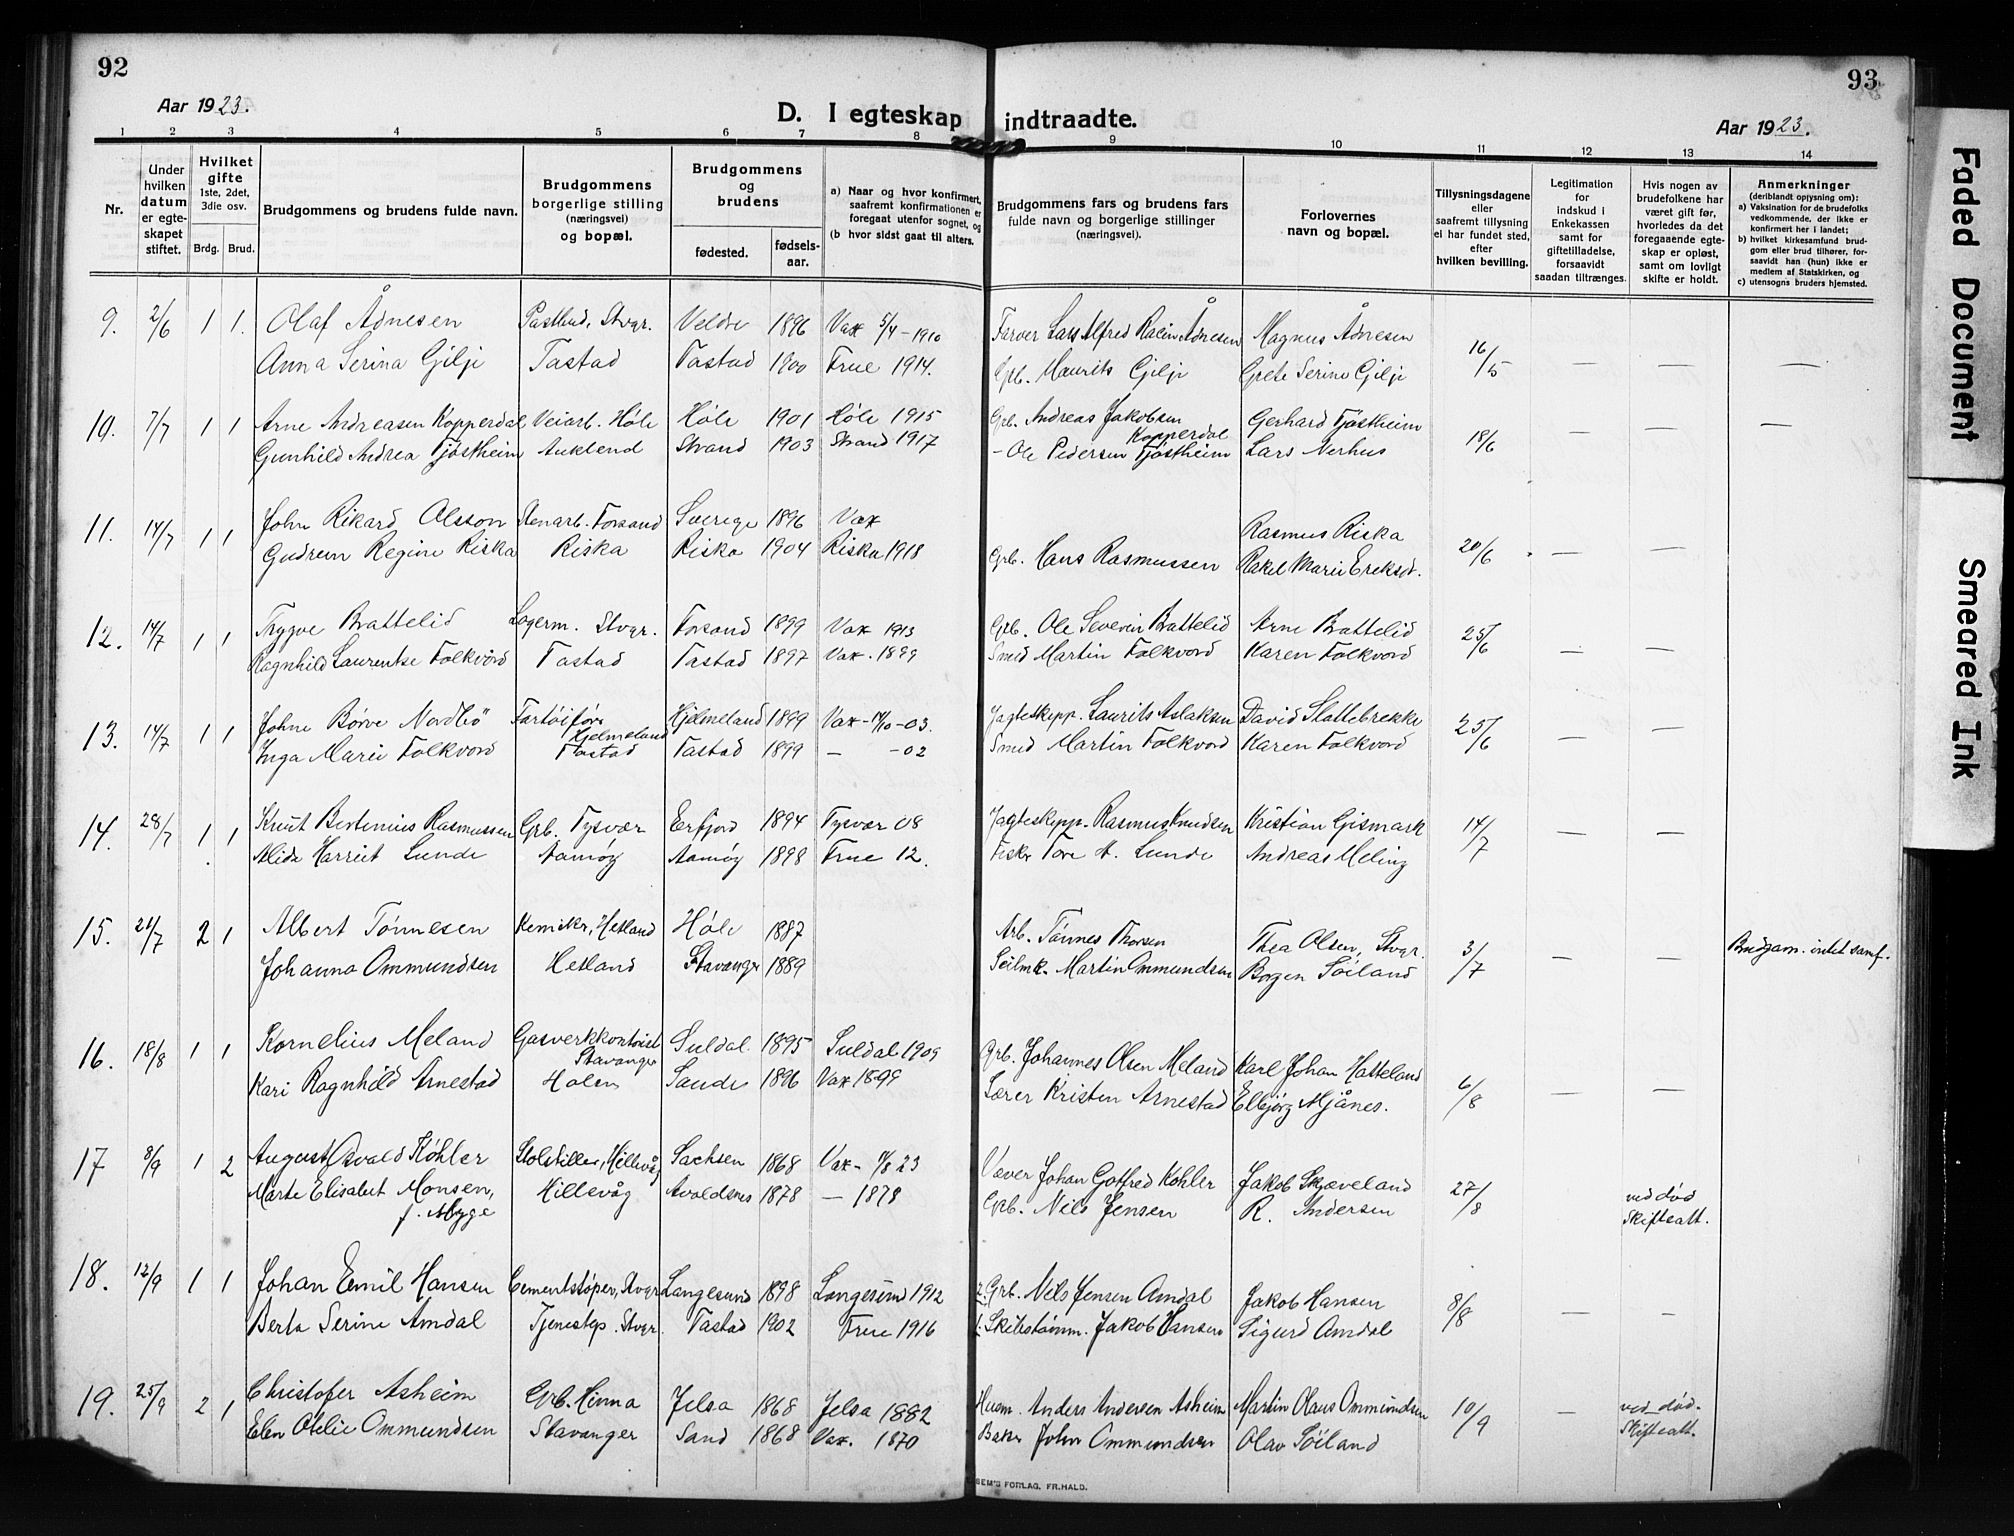 92
Aar 1923.
D. I egteskap indtraadte.
93
Aar 1923.
1 2 3 4 5 6 7 8 9 10 11 12 13 14
Nr.
Under hvilken datum er egteskapet stiftet.
Hvilket gifte 1ste, 2det, 3die osv.
Brdg. Brud.
Brudgommens og brudens fulde navn.
Brudgommens borgerlige stilling (næringsvei) og bopæl.
Brudgommens og brudens
fødested. fødselsaar.
a) Naar og hvor konfirmert, saafremt konfirmationen er foregaat utenfor sognet, og
(b hvor sidst gaat til alters.
Brudgommens fars og brudens fars fulde navn og borgerlige stillinger (næringsvei).
Forlovernes navn og bopæl.
Tillysningsdagene eller saafremt tillysning ei har fundet sted, efter hvilken bevilling.
Legitimation for indskud i Enkekassen samt for giftetilladelse, forsaavidt saadan tiltrænges.
Hvis nogen av brudefolkene har været gift før, hvorledes da det foregaaende egteskap er opløst, samt om lovligt skifte er holdt.
Anmerkninger (deriblandt opjysning om):
a) Vaksination for de brudefolks vedkommende, der ikke er konfirmert her i landet;
b) hvilket kirkesamfund brudgom eller brud tilhører, forsaavidt han (hun) ikke er medlem af Statskirken, og
c) utensogns bruders hjemsted.
9. 2/6 1 1. Olaf Ådnesen Postbud, Stvgr. Veldre 1896 Vax 5/4-1910 Farver Lars Alfred Ådnesen Magnus Ådnesen 16/5 — — —
Anna Serina Gilje Tastad Tastad 1900 Frue 1914. Grb. Maurits Gilje Grete Serine Gilje
10. 7/7 1 1 Arne Andreasen Kopperdal Veiarb. Høle Høle 1901 Høle 1915 Grb. Andreas Jakobsen Kopperdal Gerhard Tjøstheim 18/6 — — —
Gunhild Andrea Tjøstheim Auklend Strand 1903 Strand 1917 - Ole Pedersen Tjøstheim Lars Nerhus
11. 14/7 1 1 John Rikard Olsson Stenarb. Forsand Sverige 1896 Vax Rasmus Riska 20/6 — —
Gudrun Regine Riska Riska Riska 1904 Riska 1918 Grb. Hans Rasmussen Rakel Marie Ereksdt.
12. 14/7 1 1 Trygve Brattelid Lagerm. Stvgr. Forsand 1899 Vax 1913 Grb. Ole Severin Brattelid Arne Brattelid 25/6 — —
Ragnhild Laurentse Folkvord Tastad Tastad 1897 Vax. 1899 Smed Martin Folkvord Karen Folkvord
13. 14/7 1 1 Johne Børve Nordbö Fartøifører Hjelmeland Hjelmeland 1899 Vax -03. Jagteskipp. Laurits Aslaksen David Slattebrekke 25/6 — —
Inga Marie Folkvord Tastad Tastad 1899 — -02 Smed Martin Folkvord Karen Folkvord
14. 28/7 1 1 Knut Bertinius Rasmussen Grb. Tysvær Erfjord 1894 Tysvær 08 Jagteskipp. Rasmus Knudsen Kristian Gismark 14/7 — —
Alida Harriet Lunde Aamøy Aamøy 1898 Frue 12. Fiskr Tore H. Lunde Andreas Meling
15. 21/7 2 1 Albert Tønnesen Kemikr, Hetland Høle 1887 Arb. Tønnes Thorsen Thea Olsen, Stvgr. 3/7 — — Brudgom. intet samf.
Johanna Ommundsen Hetland Stavanger 1889 Seilmk. Martin Ommundsen Borgen Soiland
16. 18/8 1 1 Kornelius Meland Gasverkkontoist Stavanger Suldal 1895 Suldal 1909 Grb. Johannes Olsen Meland Karl Johan Hatteland 6/8 — —
Kari Ragnhild Arnestad Holen Sande 1896 Vax 1899 Lærer Kristen Arnestad Elbjørg Mjånes.
17 8/9 1 2 August Osvald Køhler Stolstiller, Hillevåg Sachsen 1868 Vax- 23 Væver Johan Gotfred Kohler Jakob Skjæveland 27/8 ved død Skifteatt.
Marte Elisabet Monsen, f. Myge Hillevåg Avaldsnes 1878 — 1878 Grb. Nils Jensen R. Andersen
18. 12/9 1 1 Johan Emil Hansen Cementstøper, Stvgr Langesund 1898 Langesund 1912 2. Grb. Nils Jensen Amdal Jakob Hansen 8/8 — —
Berta Serine Amdal Tjenestep. Stvgr. Tastad 1902 Frue 1916 1. Skibstømm. Jakob Hansen Sigurd Amdal
19. 25/9 2 1 Christofer Asheim Grb. Hinna Jelsa 1868 Jelsa 1882 Husm. Anders Andersen Asheim Martin Olaus Ommundsen 10/9 — ved død. Skifteatt.
Elen Otelie Ommundsen Stavanger Sand 1868 Vax. 1870 Baker John Ommundsen Olav Soiland
SEM'S FORLAG, FR.HALD.
Faded Document
Smeared Ink